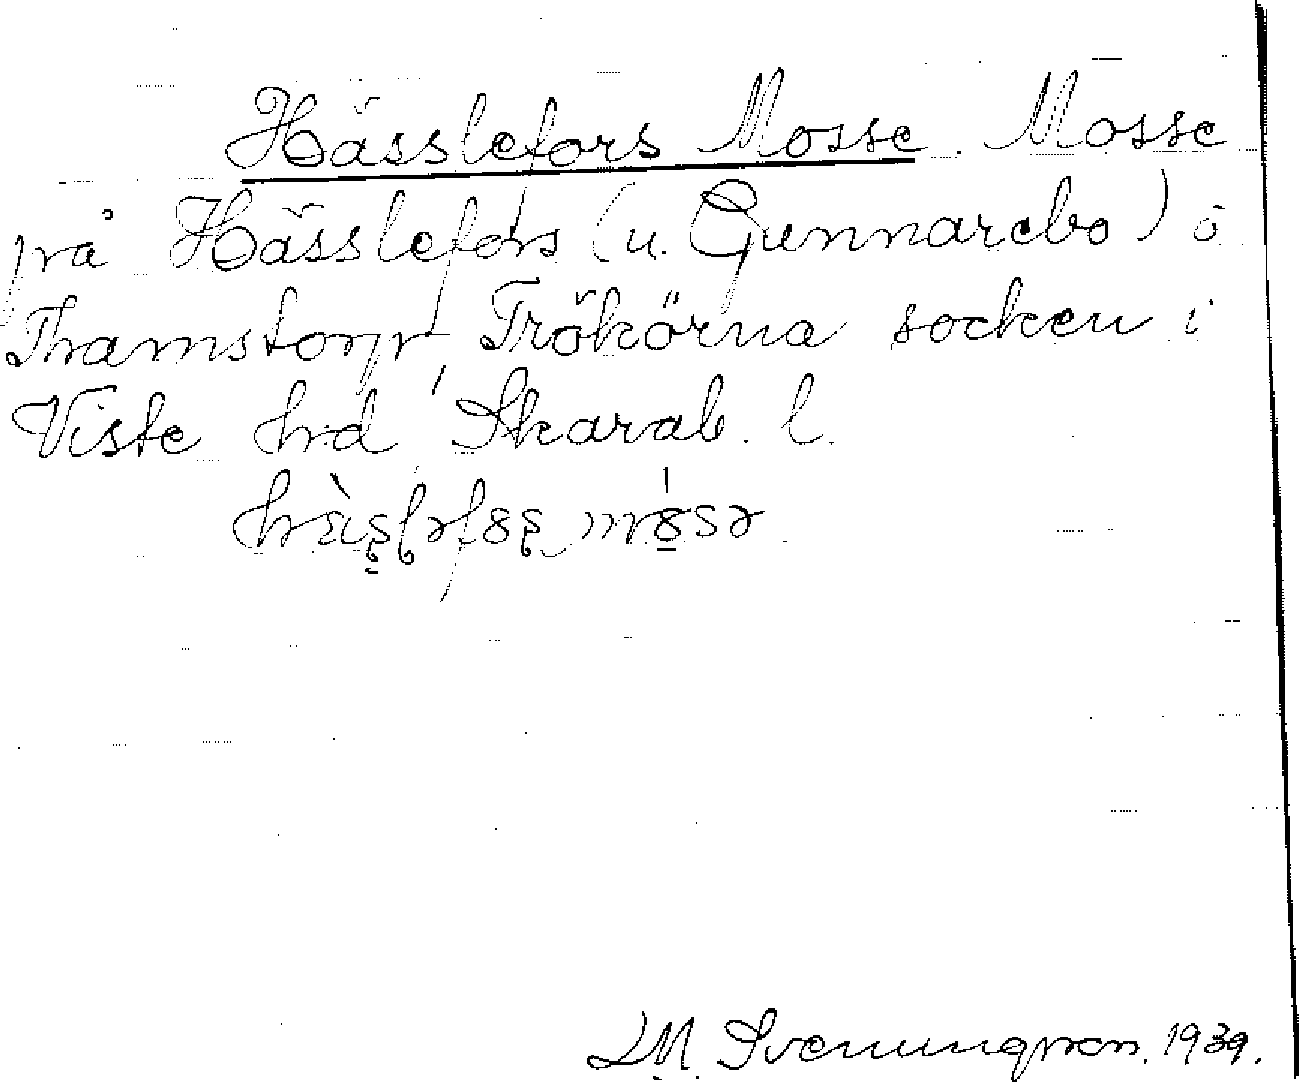 Hässlefors Mosse. Mosse
på Hässlefors (u. Gunnarebo) o
Thamstorp, Trökörna socken i
Viste hd, Skarab. l.
SM. Svenungsson. 1939.